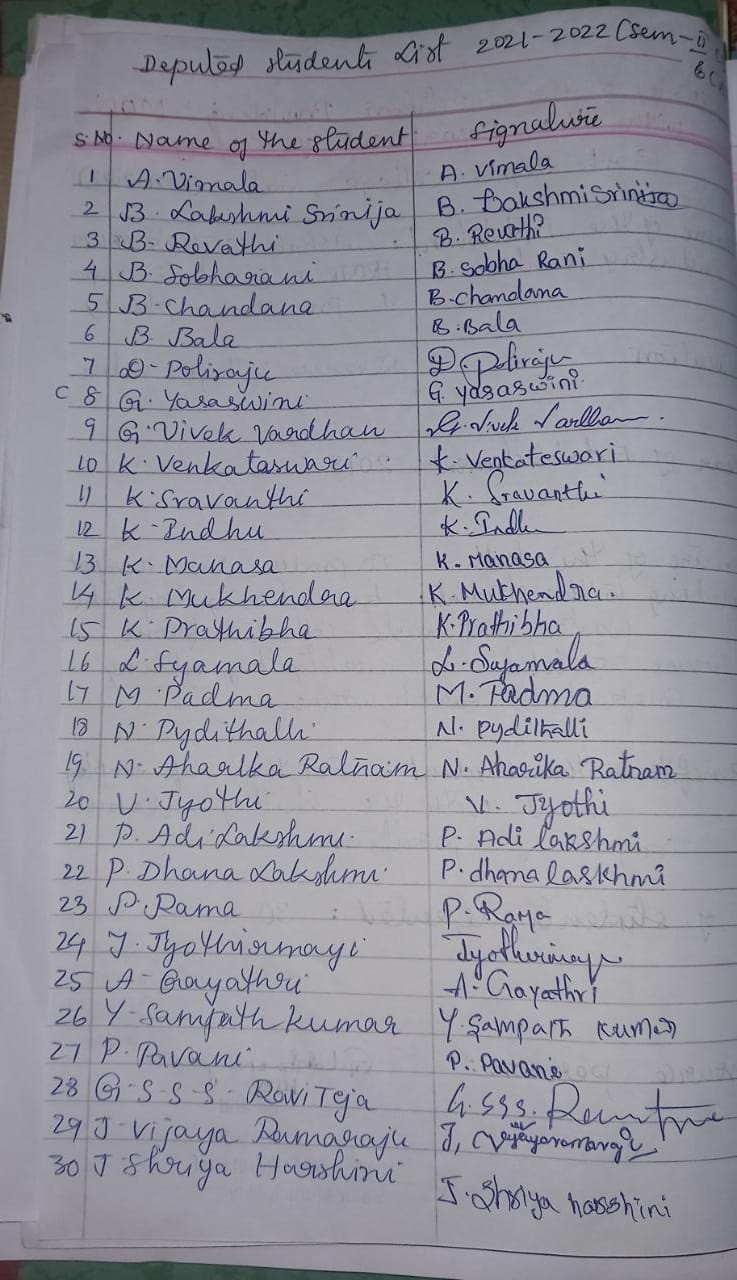 Deputed students List 2021-2022 (Sem-II
S.No. Name of the student Signature
1 A. Vimala A. Vimala
2 B. Lakshmi Srinija B. Lakshmi Srinija
3 B. Revathi B. Revathi
4 B. Sobharani B. Sobha Rani
5 B. Chandana B. chandana
6 B. Bala B. Bala
7 D. Poliraju D. Poliraju
C 8 G. Yasaswini G. yasaswini
9 G. Vivek Vardhan G. Vivek Vardhan
10 K. Venkataswari K. Venkateswari
11 K. Sravanthi K. Sravanthi
12 K. Indhu K. Indhu
13 K. Manasa K. Manasa
14 K. Mukhendra K. Mukhendra.
15 K. Prathibha K. Prathibha
16 L. Syamala L. Syamala
17 M. Padma M. Padma
18 N. Pydithalli N. pydithalli
19 N. Aharika Ratnam N. Aharika Ratnam
20 V. Jyothi V. Jyothi
21 P. Adi Lakshmi P. Adi lakshmi
22 P. Dhana Lakshmi P. dhana laskhmi
23 P. Rama P. Rama
24 J. Jyothirmayi Jyothirmayi
25 A. Gayathri A. Gayathri
26 Y. Sampath kumar Y. Sampath kumar
27 P. Pavani P. Pavani
28 G. S. S. S. RaviTeja G. SSS.
29 J. Vijaya Ramaraju J, Vijayaramaraju
30 J Shriya Harshini J. Shriya harshini